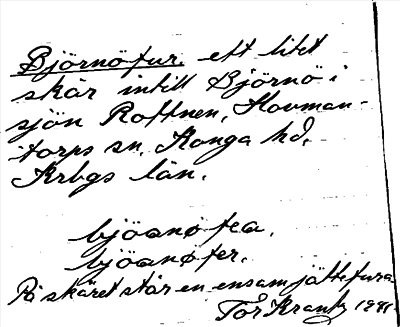 Björnöfur. ett litet
skär intill Björnö i
sjön Rottnen, Hovman-
torps sn. Konga hd,
Krbgs län.
bjöanöfea,
bjöanöfer.
På skäret står en ensam jättefura
Tor Krantz